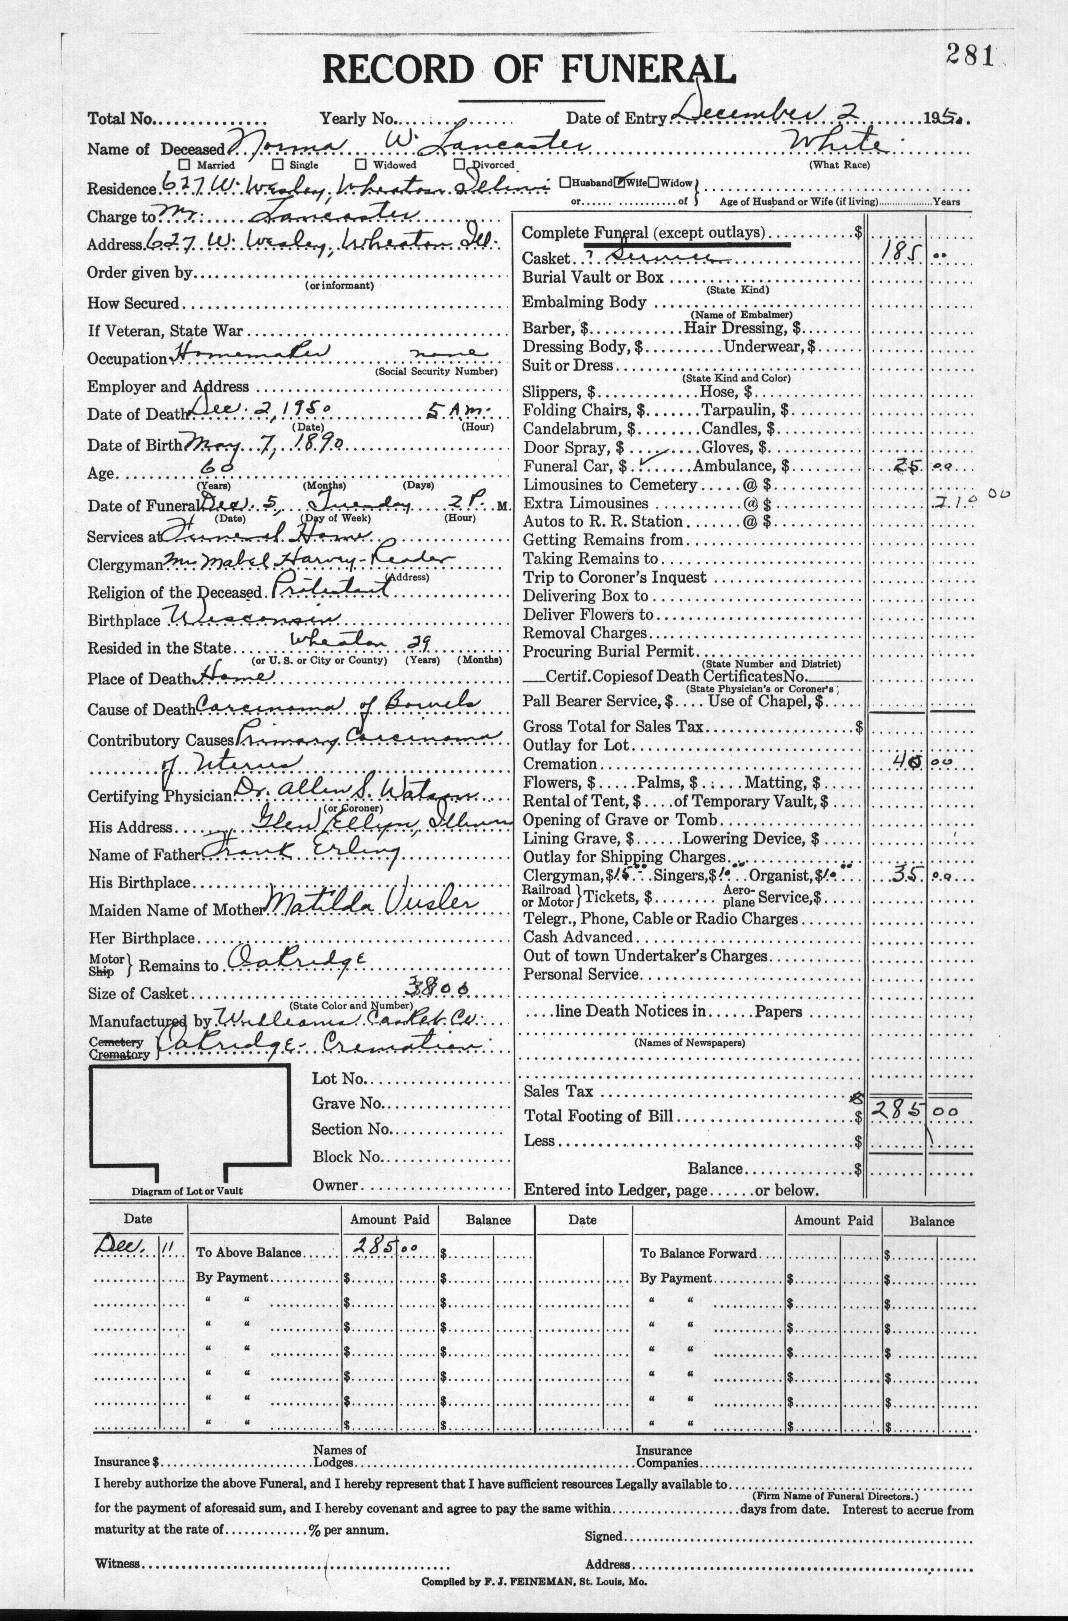 281
RECORD OF FUNERAL
Total No............... Yearly No............... Date of Entry December 2 1950
Name of Deceased Norma W. Lancaster White
☐ Married ☐ Single ☐ Widowed ☐ Divorced (What Race)
Residence 627 W. Wesley, Wheaton Illinois ☐Husband ☑Wife ☐Widow }
or...... ............of Age of Husband or Wife (if living)..................Years
Charge to Mr. Lancaster
Address 627 W. Wesley, Wheaton Ill.
Order given by
(or informant)
How Secured
If Veteran, State War
Occupation Homemaker none
(Social Security Number)
Employer and Address
Date of Death Dec. 2, 1950 5 A.M.
(Date) (Hour)
Date of Birth May 7, 1890
Age 60
(Years) (Months) (Days)
Date of Funeral Dec. 5, Tuesday 2 P. M.
(Date) (Day of Week) (Hour)
Services at Funeral Home
Clergyman Mrs Mabel Harvey - Reader
(Address)
Religion of the Deceased Protestant
Birthplace Wisconsin
Resided in the State Wheaton 29
(or U. S. or City or County) (Years) (Months)
Place of Death Home
Cause of Death Carcinoma of Bowels
Contributory Causes Primary Carcinoma
of Uterus
Certifying Physician Dr. Allen S. Watson
(or Coroner)
His Address Glen Ellyn, Illinois
Name of Father Frank Erling
His Birthplace
Maiden Name of Mother Matilda
Her Birthplace
Motor
Ship } Remains to Oakridge
Size of Casket 3800
(State Color and Number)
Manufactured by Williams Casket Co.
Cemetery
Crematory } Oakridge - Cremation
Lot No.
Grave No.
Section No.
Block No.
Owner
Diagram of Lot or Vault
Complete Funeral (except outlays) $
Casket ? Service 185 00
Burial Vault or Box
(State Kind)
Embalming Body
(Name of Embalmer)
Barber, $............Hair Dressing, $
Dressing Body, $..........Underwear, $
Suit or Dress
(State Kind and Color)
Slippers, $................Hose, $
Folding Chairs, $.......Tarpaulin, $
Candelabrum, $........Candles, $
Door Spray, $..........Gloves, $
Funeral Car, $ ✓ Ambulance, $ 25 00
Limousines to Cemetery ..... @ $
Extra Limousines ........... @ $ 210 00
Autos to R. R. Station ...... @ $
Getting Remains from
Taking Remains to
Trip to Coroner's Inquest
Delivering Box to
Deliver Flowers to
Removal Charges
Procuring Burial Permit
(State Number and District)
___Certif. Copies of Death Certificates No.
(State Physician's or Coroner's)
Pall Bearer Service, $.... Use of Chapel, $
Gross Total for Sales Tax $
Outlay for Lot
Cremation 40 00
Flowers, $.....Palms, $.....Matting, $
Rental of Tent, $....of Temporary Vault, $
Opening of Grave or Tomb
Lining Grave, $......Lowering Device, $
Outlay for Shipping Charges
Clergyman, $15.00 Singers, $10.00 Organist, $10.00 35 00
Railroad
or Motor } Tickets, $........ Aero-
plane Service, $
Telegr., Phone, Cable or Radio Charges
Cash Advanced
Out of town Undertaker's Charges
Personal Service
....line Death Notices in......Papers
(Names of Newspapers)
Sales Tax
Total Footing of Bill $ 285 00
Less $
Balance $
Entered into Ledger, page......or below.
Date Amount Paid Balance Date Amount Paid Balance
Dec. 11 To Above Balance 285 00 $ To Balance Forward $
By Payment $ $ By Payment $ $
" " $ $ " " $ $
" " $ $ " " $ $
" " $ $ " " $ $
" " $ $ " " $ $
" " $ $ " " $ $
" " $ $ " " $ $
Insurance $ Names of
Lodges Insurance
Companies
I hereby authorize the above Funeral, and I hereby represent that I have sufficient resources Legally available to
(Firm Name of Funeral Directors.)
for the payment of aforesaid sum, and I hereby covenant and agree to pay the same within....................days from date. Interest to accrue from
maturity at the rate of............% per annum.
Signed
Witness Address
Compiled by F. J. FEINEMAN, St. Louis, Mo.